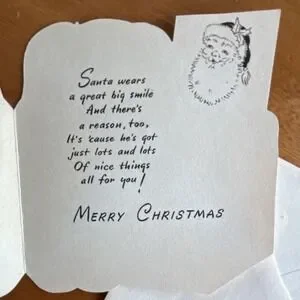 Santa wears
a great big smile
And there's
a reason, too,
It's 'cause he's got
just lots and lots
Of nice things
all for you!
MERRY CHRISTMAS